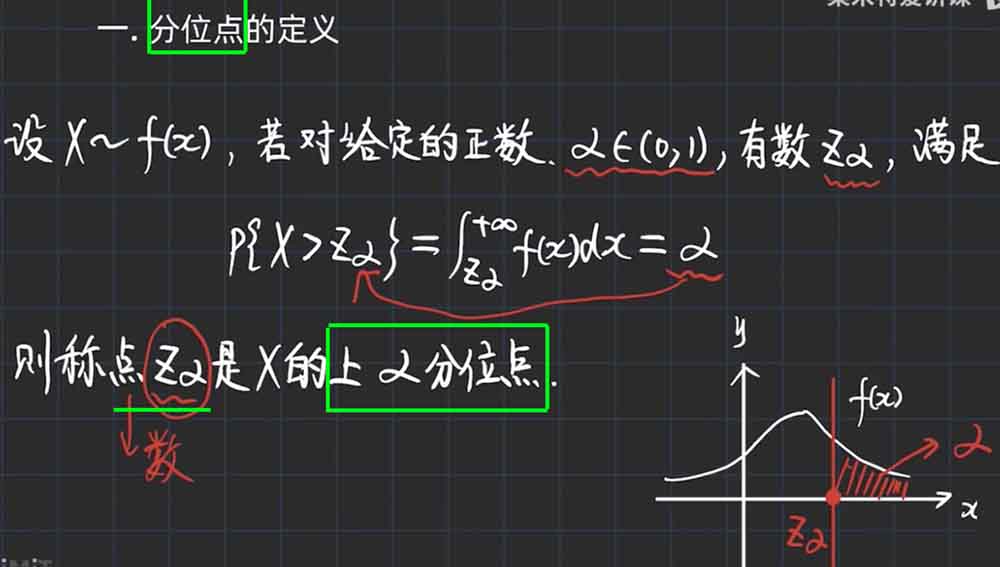 一. 分位点的定义
设 X~f(x), 若对给定的正数. α∈(0,1), 有数 Zα, 满足
P{X>Zα}=∫_{Zα}^{+∞}f(x)dx=α
则称点 Zα 是 X的上 α分位点.
数
y
f(x)
α
x
Zα